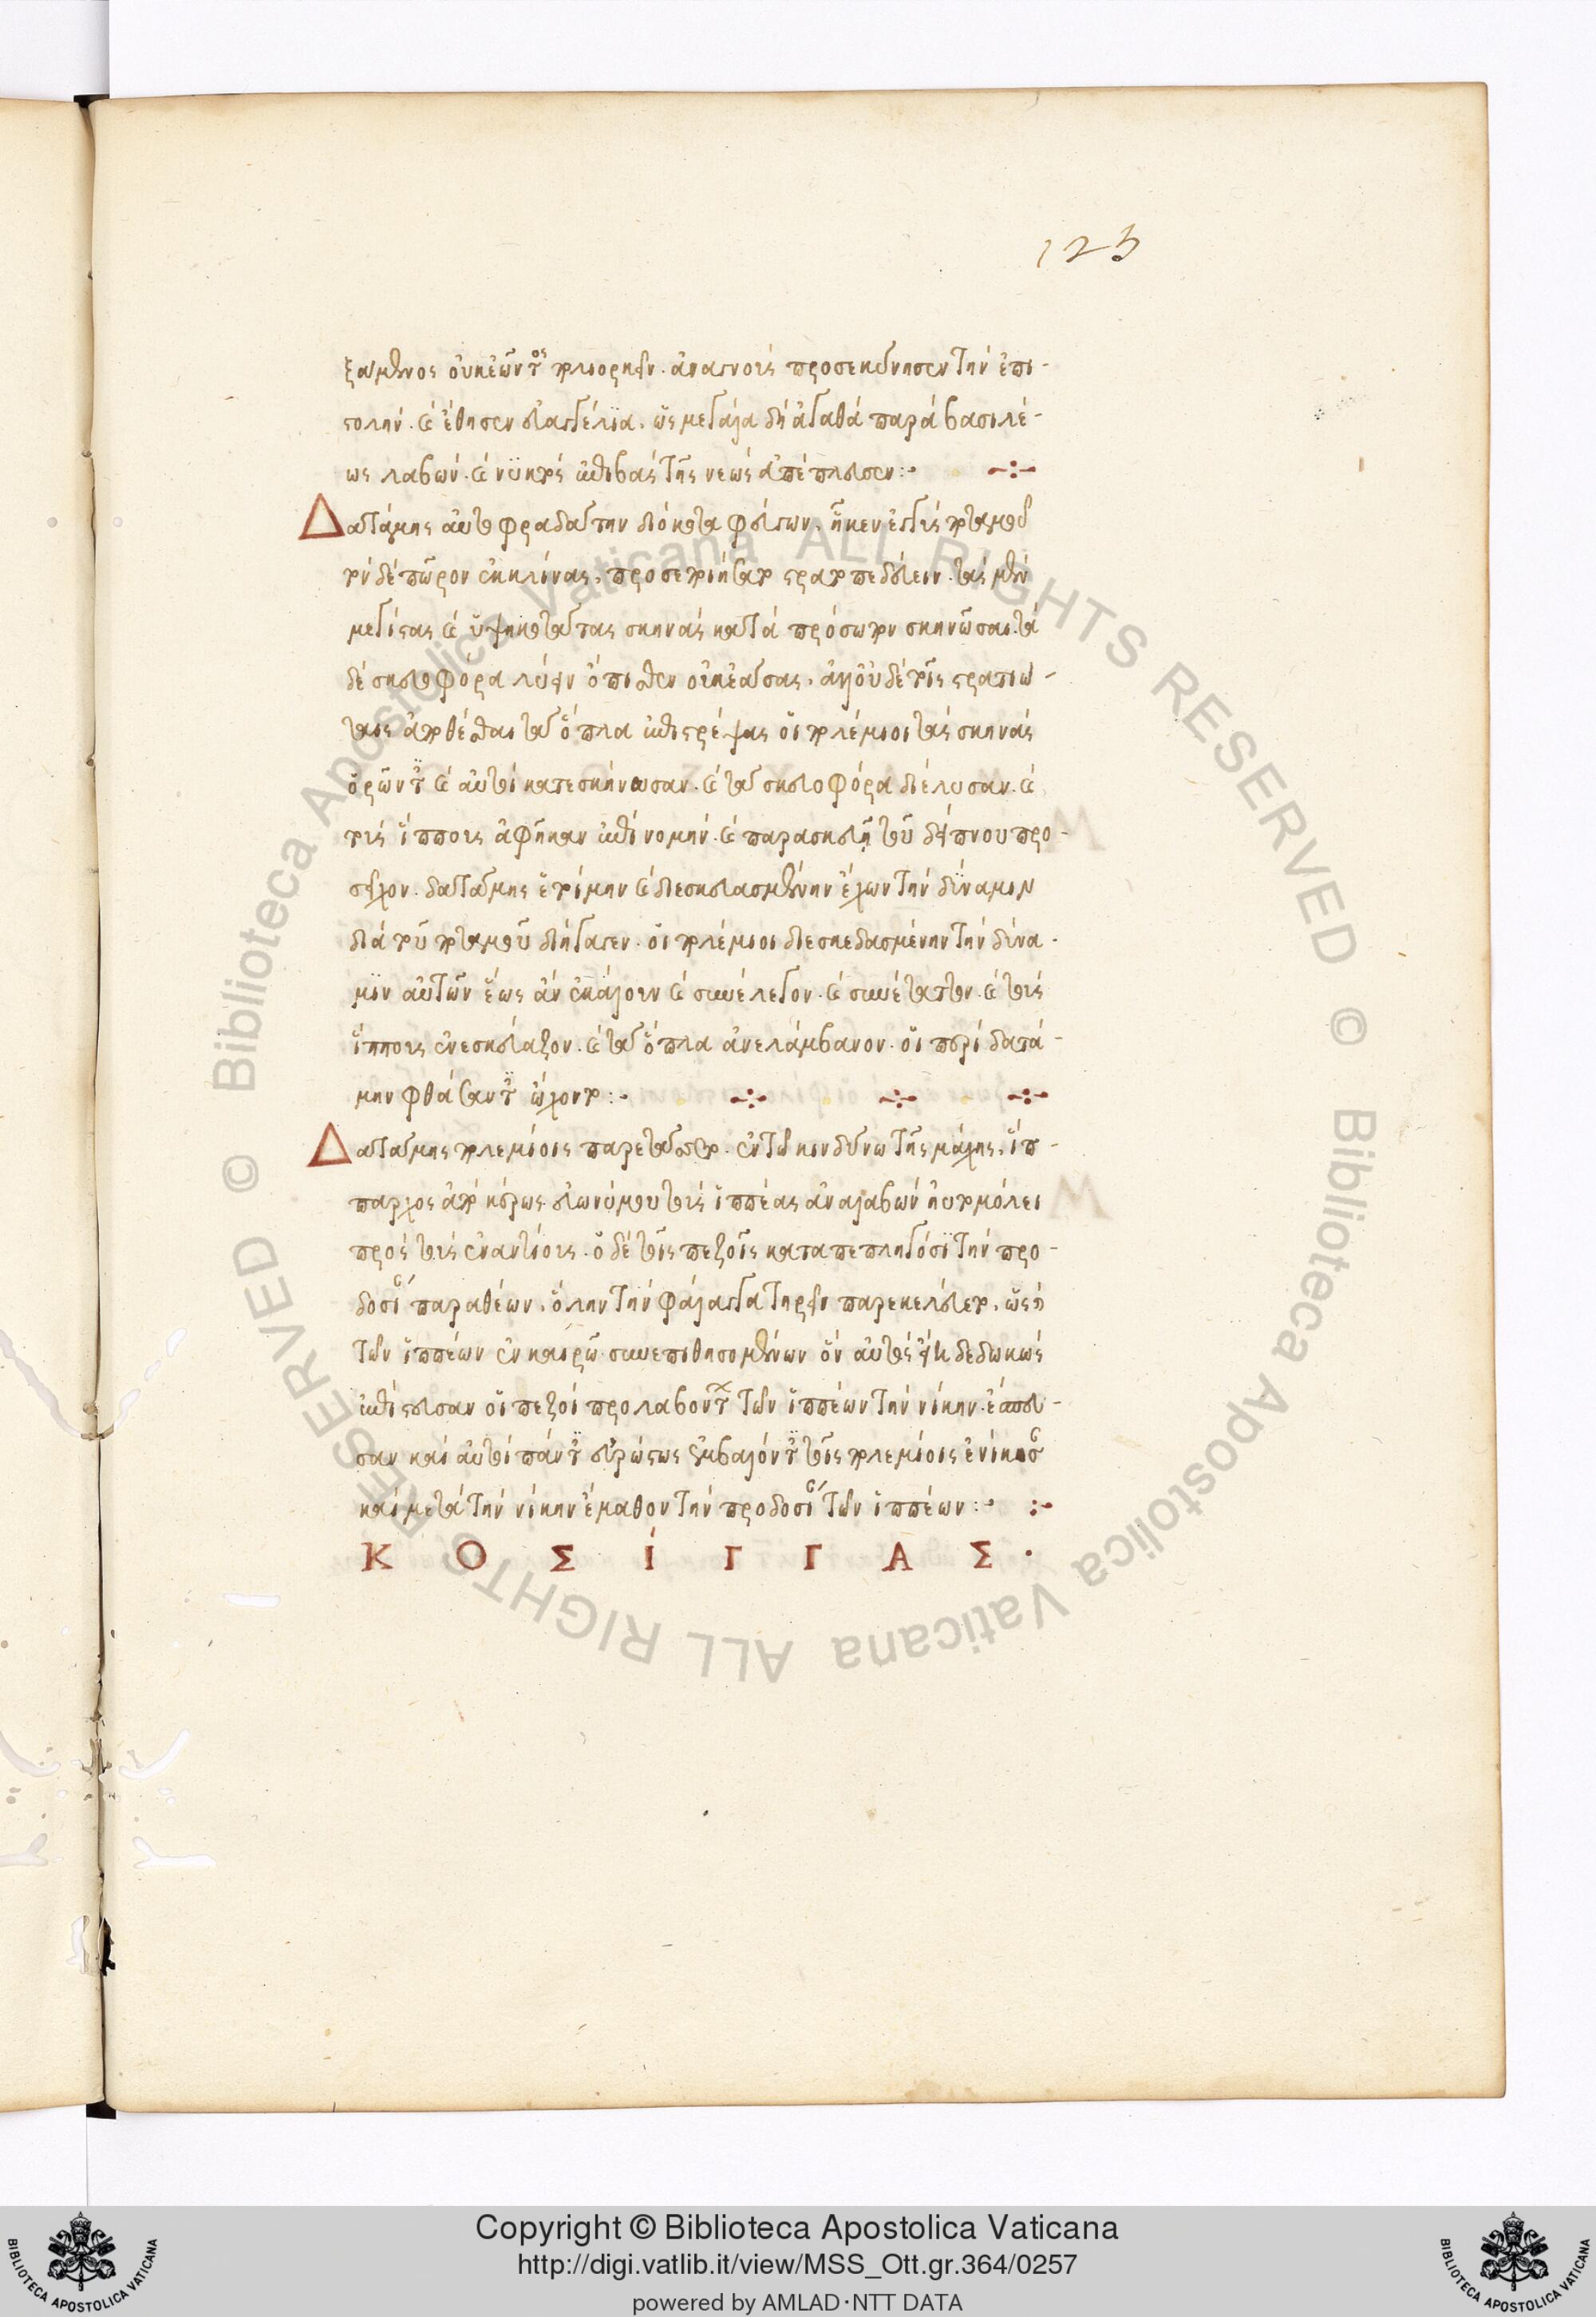 125
ξάμενος οὐκ ἐῶντος πολιορκεῖν. ἀναγνοὺς προσεκύνησεν τὴν ἐπι-
στολήν. καὶ ἔθησεν εὐαγγέλια. ὡς μεγάλα δὴ ἀγαθὰ παρὰ βασιλέ-
ως λαβών. καὶ νυκτὸς ἐπιβὰς τῆς νεὼς ἀπέπλευσεν:·
Δατάμης αὐτοφραδάτην διώκοντα φεύγων. ἧκεν ἐπὶ τοὺς ποταμοῦ
τὸν δὲ πῶρον ἐκκλίνας. προσεποιήσατο στρατοπεδεύειν. τὰς μὲν
μεγίστας καὶ ὑψηλοτάτας σκηνὰς κατὰ πρόσωπον σκηνῶσαι. τὰ
δὲ σκευοφόρα λύειν ὄπισθεν οἰκεάσας. ἀλλ' οὐδὲ τοῖς στρατιώ-
ταις ἀποθέσθαι τὰ ὅπλα ἐπιστρέψας οἱ πολέμιοι τὰς σκηνὰς
ὁρῶντες καὶ αὐτοὶ κατεσκήνωσαν. καὶ τὰ σκευοφόρα διέλυσαν. καὶ
τοὺς ἵππους ἀφῆκαν ἐπὶ νομήν. καὶ παρασκευῇ τοῦ δείπνου προ-
σεῖχον. δατάμης ἑτοίμην καὶ διεσκευασμένην ἔχων τὴν δύναμιν
διὰ τοῦ ποταμοῦ διήγαγεν. οἱ πολέμιοι διεσκεδασμένην τὴν δύνα-
μιν αὐτῶν ἕως ἀνεκάλουν καὶ συνέλεγον. καὶ συνέταττον. καὶ τοὺς
ἵππους ἐνεσκεύαζον. καὶ τὰ ὅπλα ἀνελάμβανον. οἱ περὶ δατά-
μην φθάσαντες ᾤχοντο:·
Δατάμης πολεμίοις παρετάσσετο. ἐν τῶ κινδύνω τῆς μάχης. ἵπ-
παρχος ἀπὸ κέρως εὐωνύμου τοὺς ἱππέας ἀναλαβὼν ηὐτομόλει
πρὸς τοὺς ἐναντίους. ὁ δὲ τοῖς πεζοῖς καταπεπληγόσι τὴν προ-
δοσίαν παραθέων. ὅλην τὴν φάλαγγα τηρεῖν παρεκελεύετο. ὡς ἢ
τῶν ἱππέων ἐν καιρῶ συνεπιθησομένων ὃν αὐτὸς εἴη δεδωκώς
ἐπίστευσαν οἱ πεζοὶ προλαβόντες τῶν ἱππέων τὴν νίκην. ἔσπευ-
σαν καὶ αὐτοὶ πάντες εὐρώστως ἐμβαλόντες τοῖς πολεμίοις ἐνίκησαν
καὶ μετὰ τὴν νίκην ἔμαθον τὴν προδοσίαν τῶν ἱππέων:·
Κ Ο Σ Ι Γ Γ Α Σ ·
Copyright © Biblioteca Apostolica Vaticana
http://digi.vatlib.it/view/MSS_Ott.gr.364/0257
powered by AMLAD·NTT DATA
BIBLIOTECA APOSTOLICA VATICANA
BIBLIOTECA APOSTOLICA VATICANA
© Biblioteca Apostolica Vaticana ALL RIGHTS RESERVED © Biblioteca Apostolica Vaticana ALL RIGHTS RESERVED